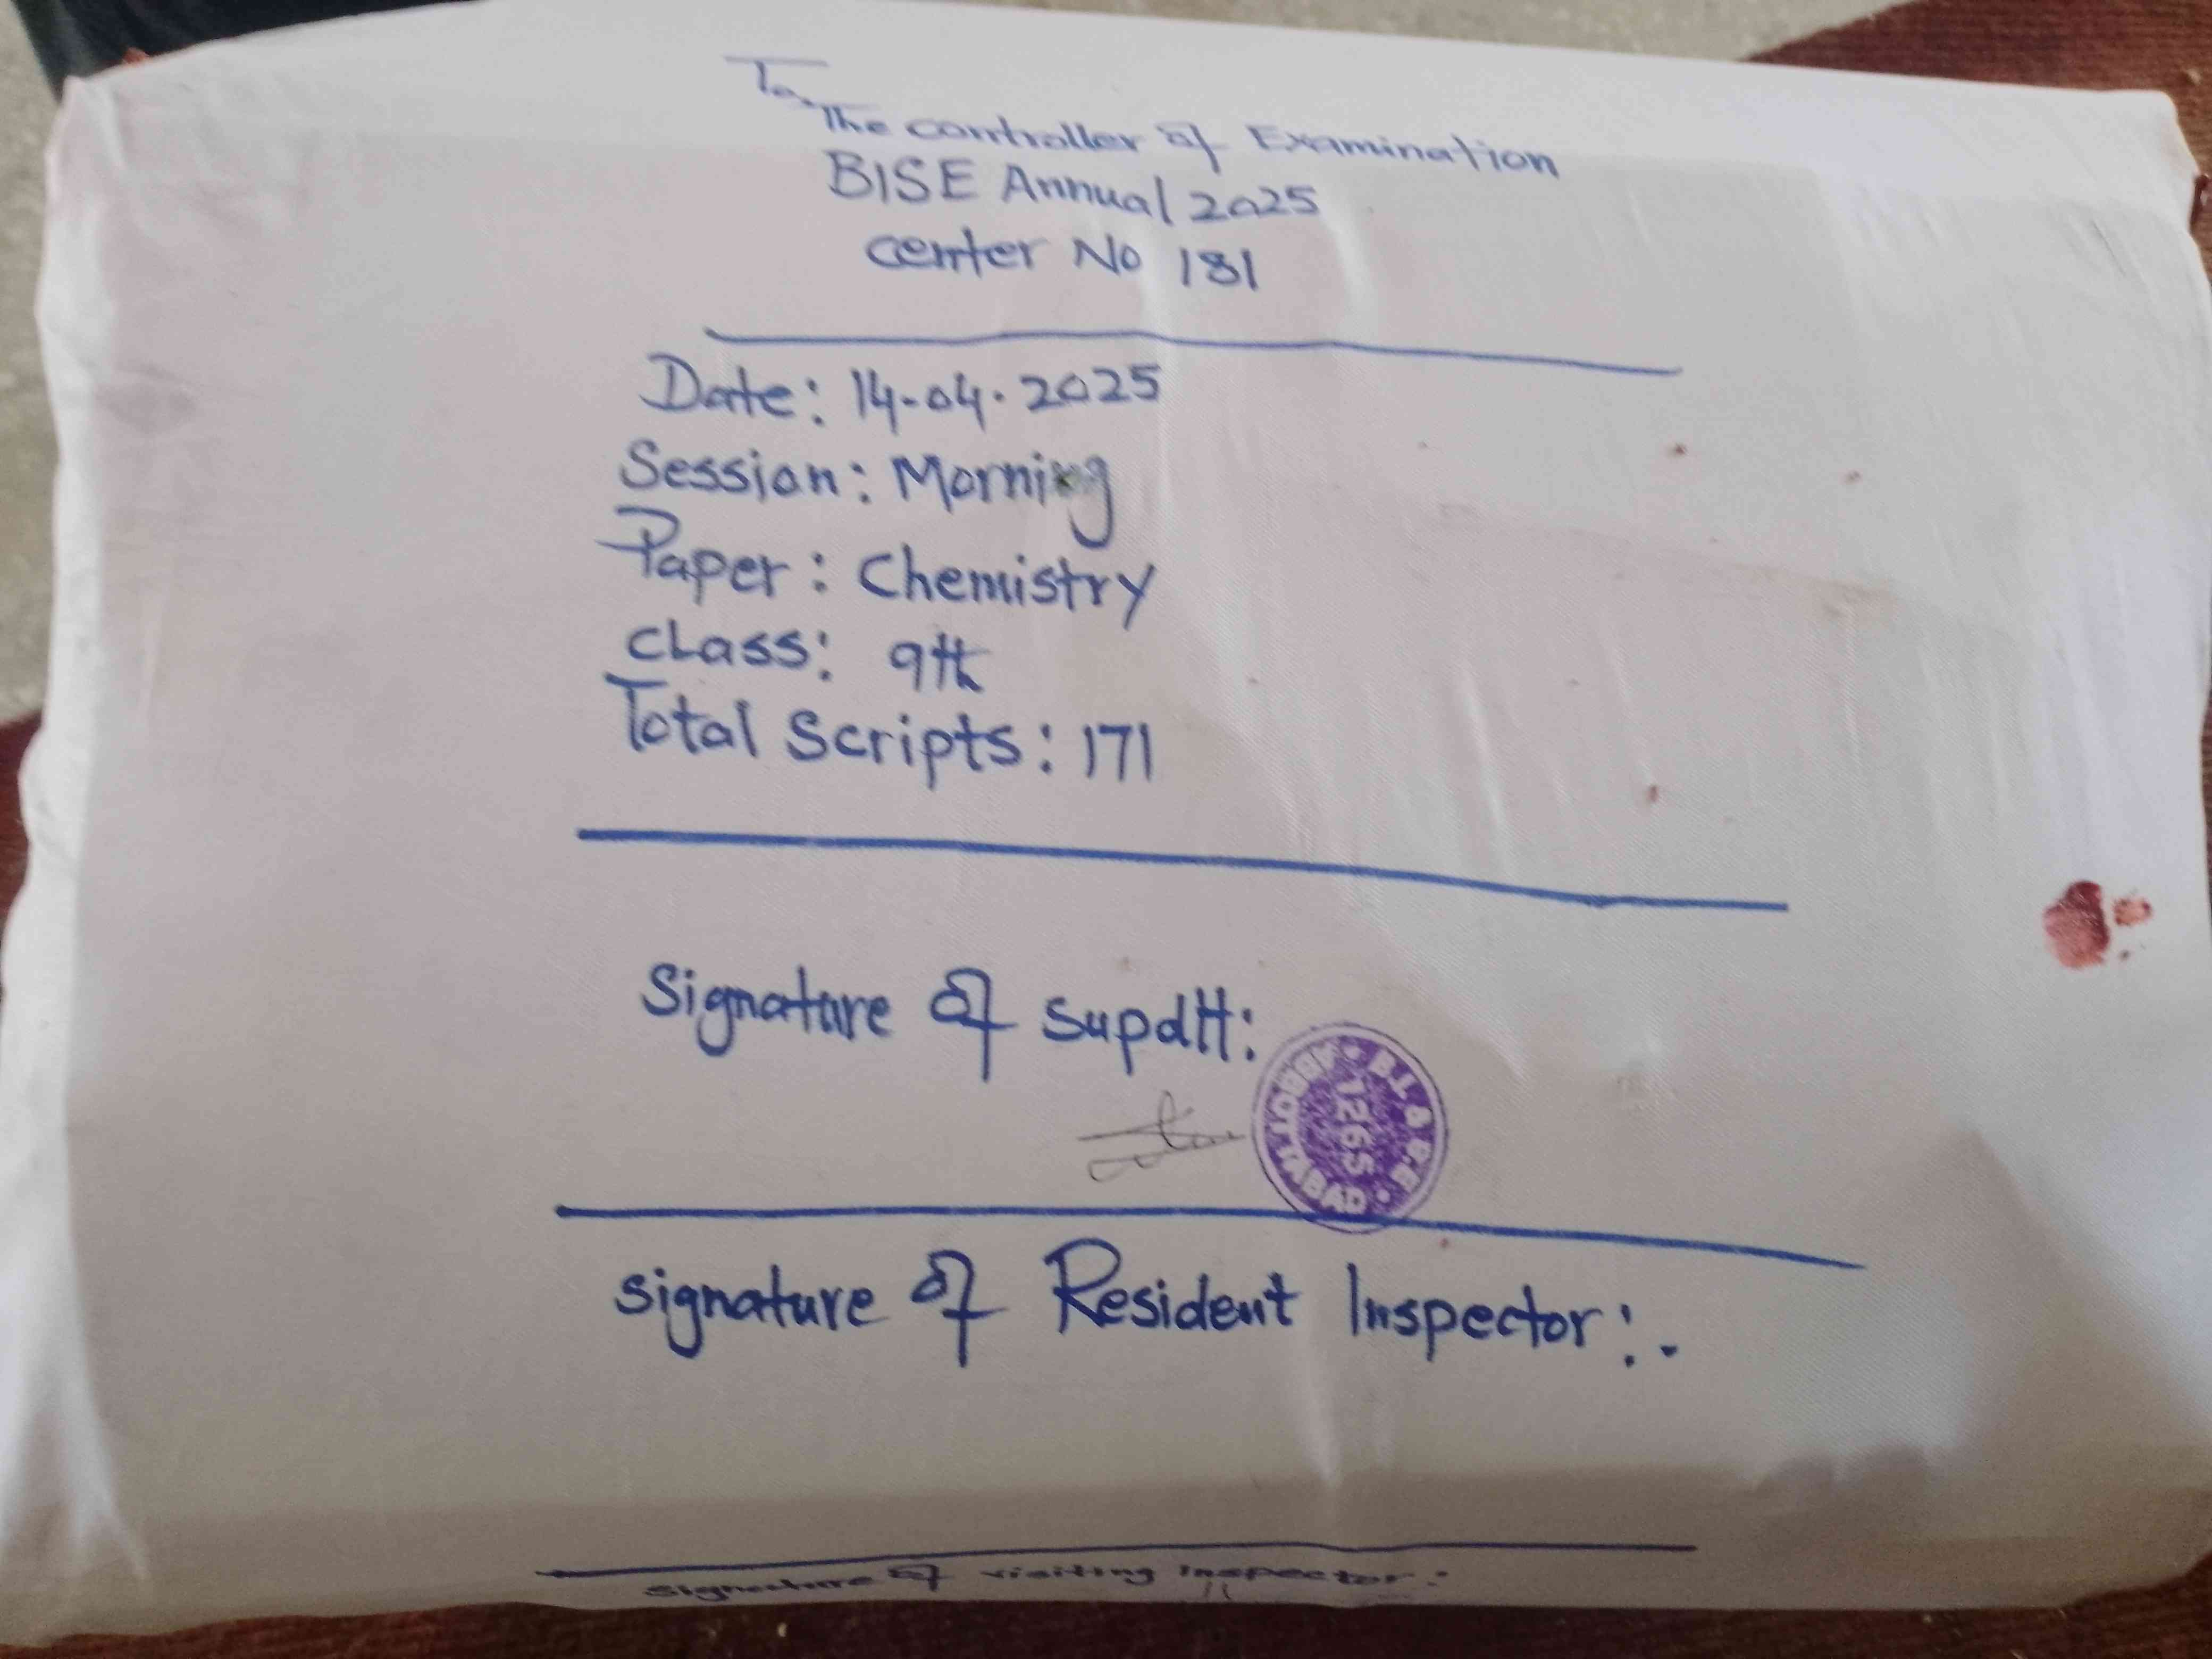 To,
The controller of Examination
BISE Annual 2025
center No 181
Date: 14-04-2025
Session: Morning
Paper: Chemistry
cLass: 9th
Total Scripts: 171
Signature of supdtt:
B.I. & S.E. ABBOTTABAD
7265
signature of Resident Inspector:-
signature of visiting inspector: